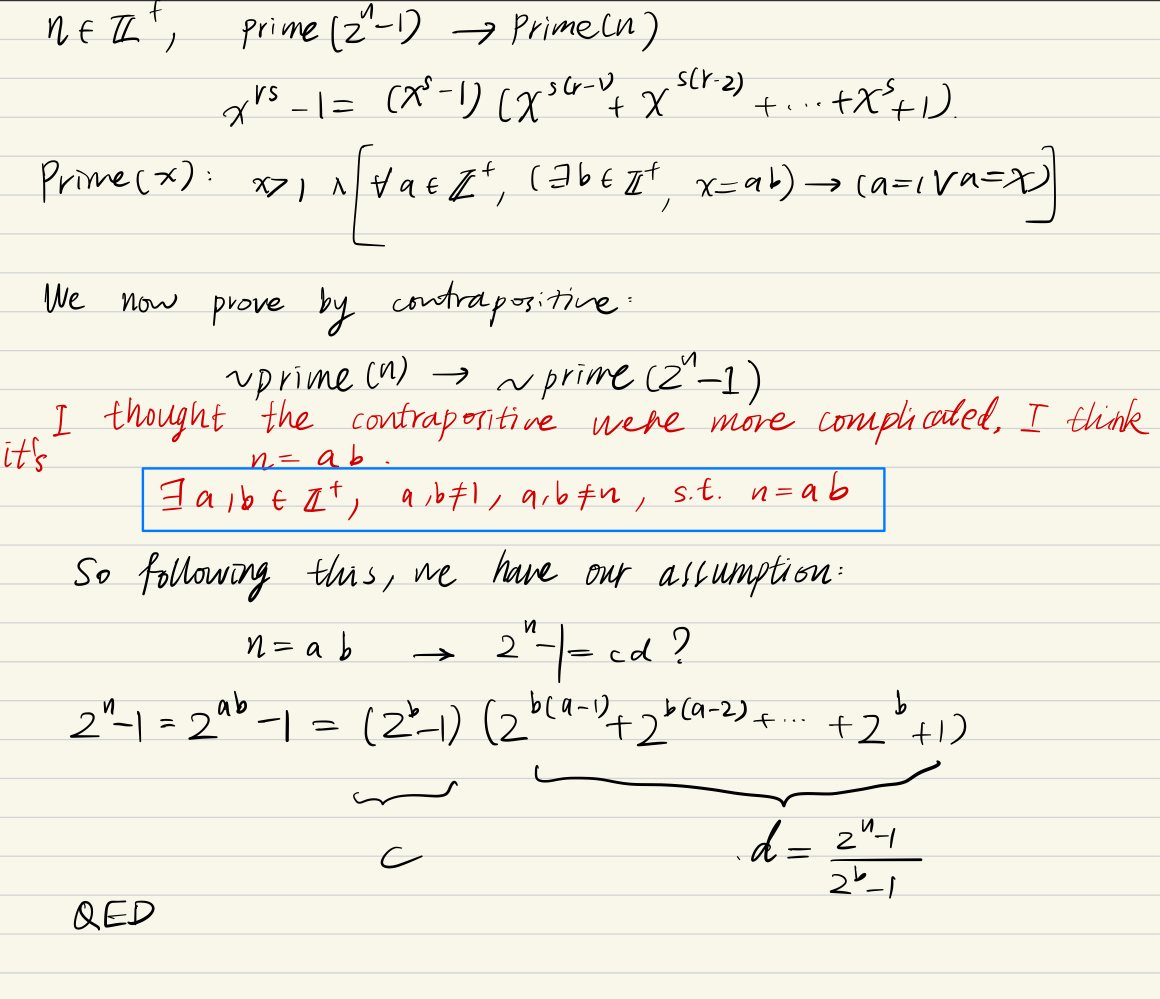 n ∈ ℤ⁺, prime(2ⁿ-1) → Prime(n)
x^{rs} - 1 = (x^s - 1) (x^{s(r-1)} + x^{s(r-2)} + ... + x^s + 1).
Prime(x): x>1 ∧ [∀a ∈ ℤ⁺, (∃b ∈ ℤ⁺, x=ab) → (a=1 ∨ a=x)]
We now prove by contrapositive:
~prime(n) → ~prime(2ⁿ-1)
I thought the contrapositive were more complicated, I think
it's n = ab.
∃a,b ∈ ℤ⁺, a,b≠1, a,b≠n, s.t. n=ab
So following this, we have our assumption:
n = ab → 2ⁿ-1 = cd ?
2ⁿ-1 = 2^{ab} - 1 = (2^b-1) (2^{b(a-1)} + 2^{b(a-2)} + ... + 2^b + 1)
c d = \frac{2ⁿ-1}{2^b-1}
QED